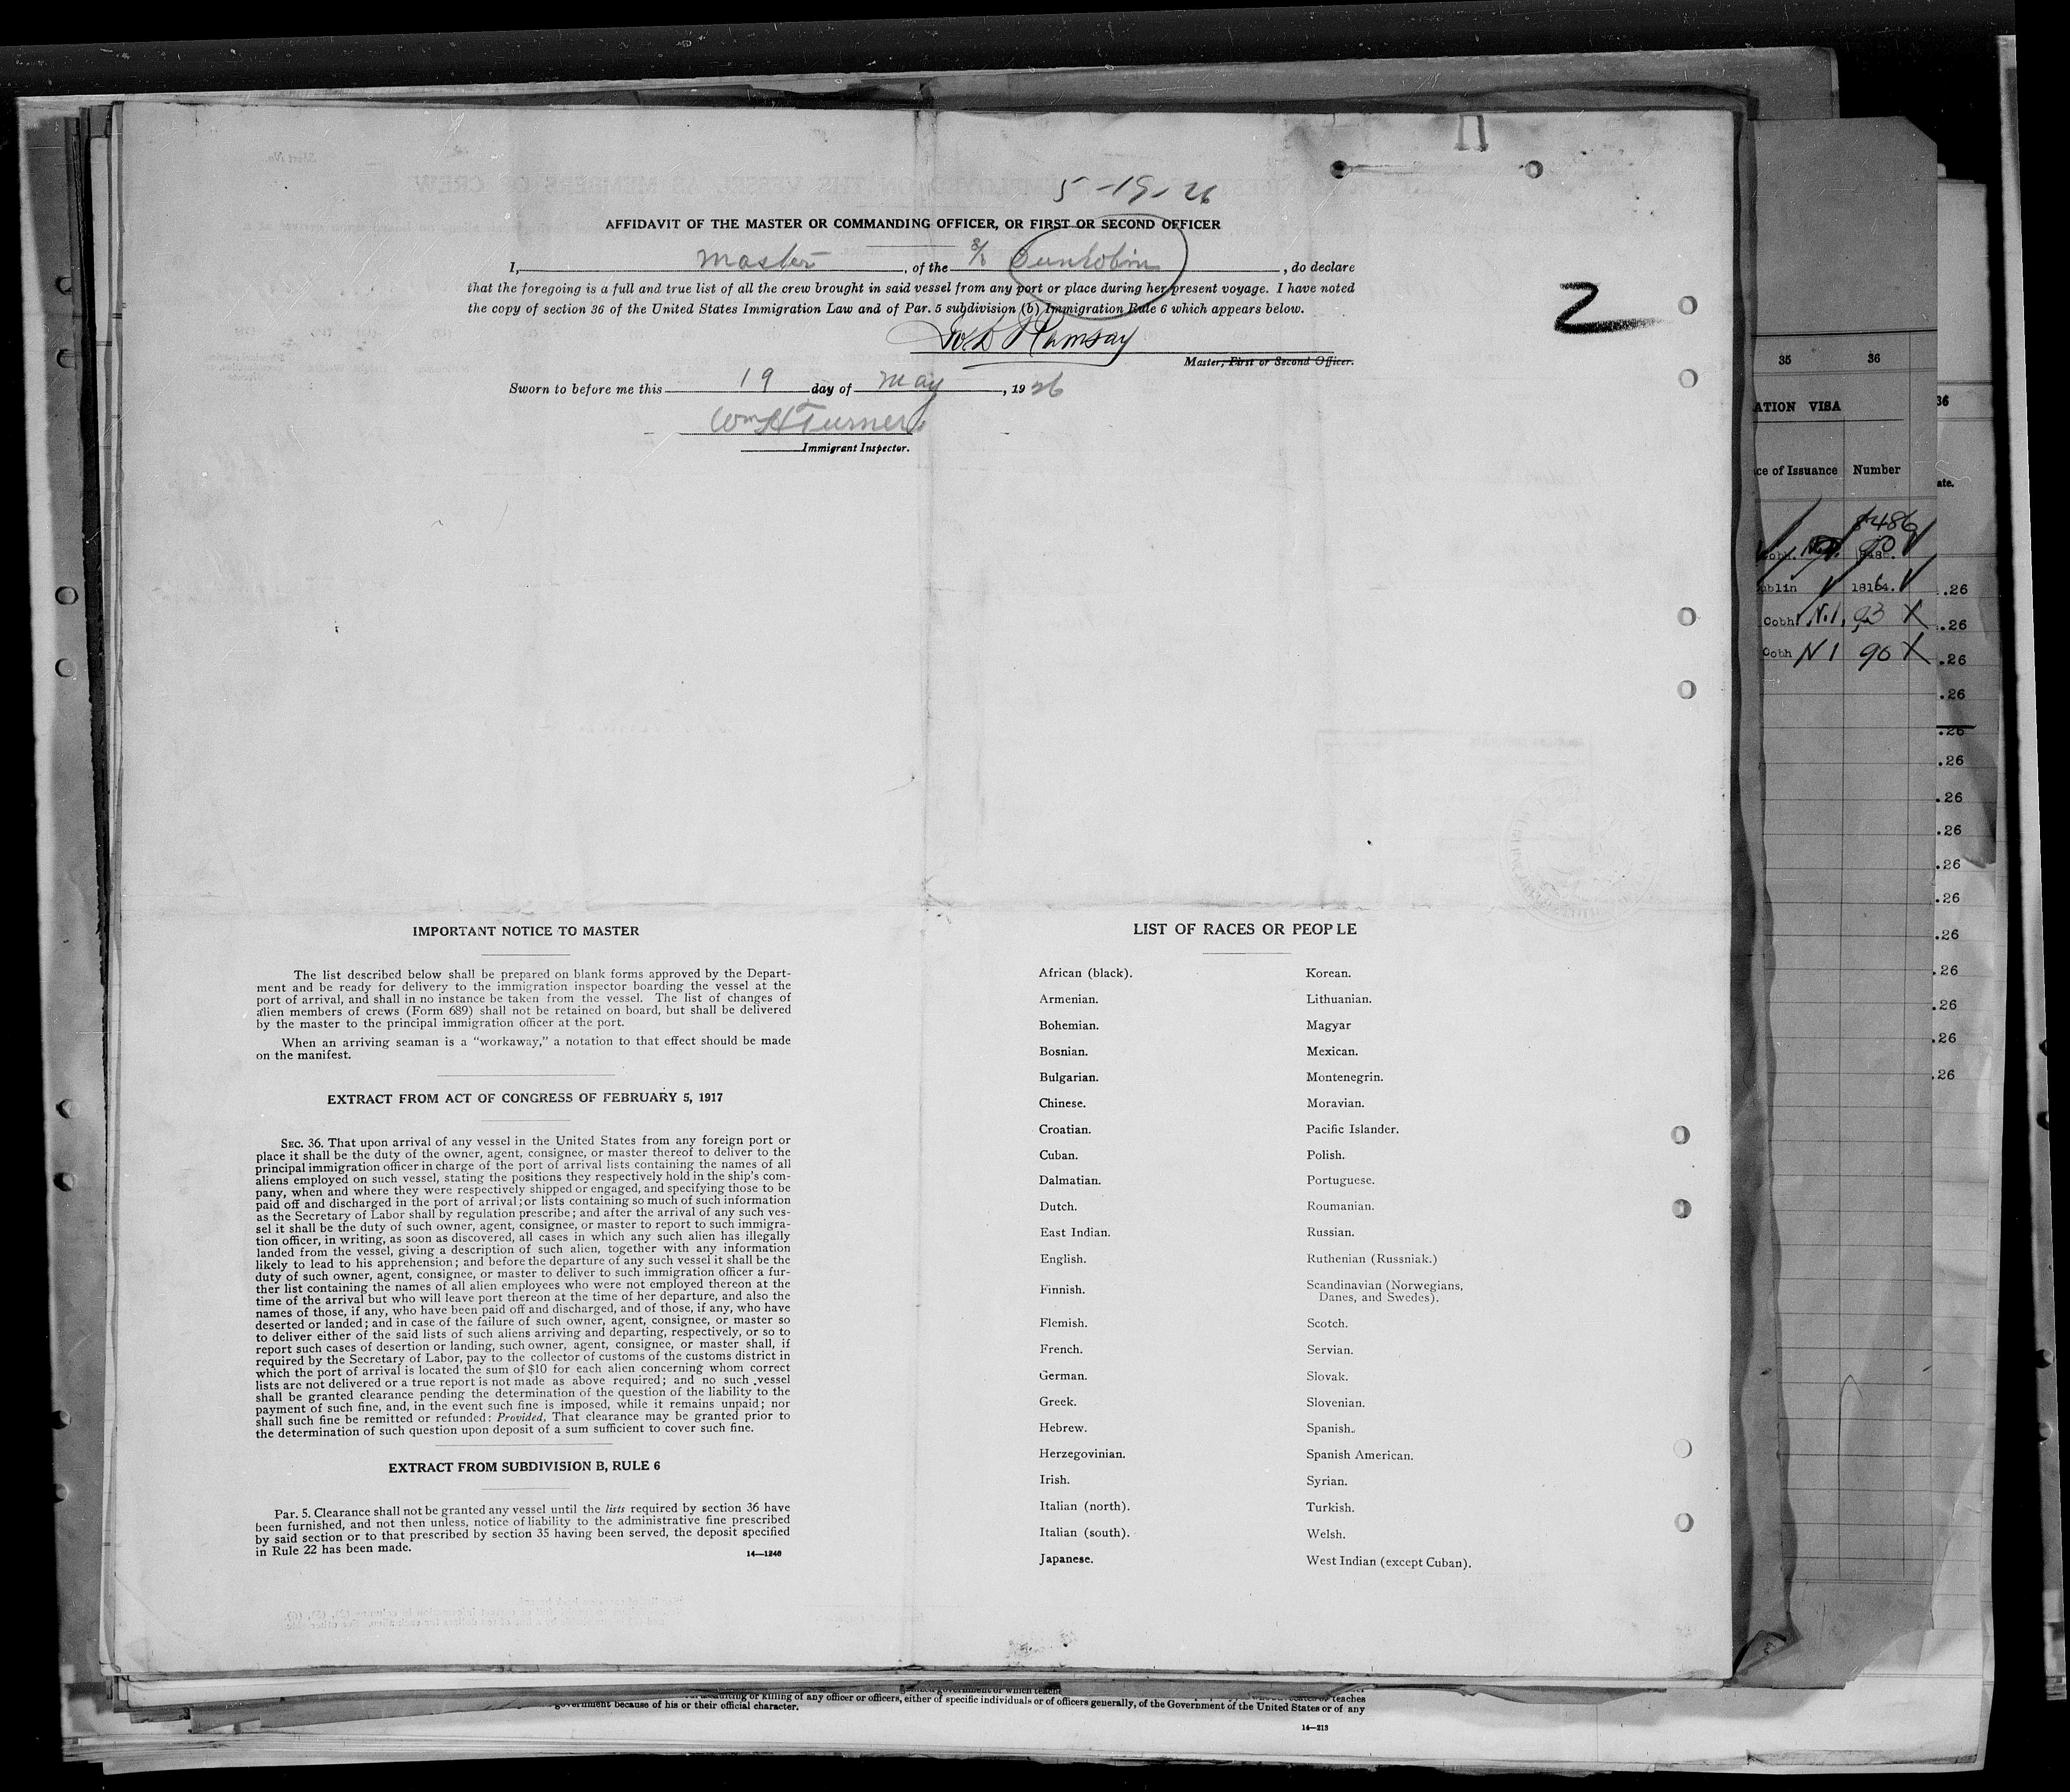 5-19-26
AFFIDAVIT OF THE MASTER OR COMMANDING OFFICER, OR FIRST OR SECOND OFFICER
I, Master, of the S/S Dunrobin, do declare
that the foregoing is a full and true list of all the crew brought in said vessel from any port or place during her present voyage. I have noted
the copy of section 36 of the United States Immigration Law and of Par. 5 subdivision (b) Immigration Rule 6 which appears below.
Ramsay
Master, First or Second Officer.
2
Sworn to before me this 19 day of May, 1926
Wm H Turner
Immigrant Inspector.
IMPORTANT NOTICE TO MASTER
The list described below shall be prepared on blank forms approved by the Depart-
ment and be ready for delivery to the immigration inspector boarding the vessel at the
port of arrival, and shall in no instance be taken from the vessel. The list of changes of
alien members of crews (Form 689) shall not be retained on board, but shall be delivered
by the master to the principal immigration officer at the port.
When an arriving seaman is a "workaway," a notation to that effect should be made
on the manifest.
EXTRACT FROM ACT OF CONGRESS OF FEBRUARY 5, 1917
SEC. 36. That upon arrival of any vessel in the United States from any foreign port or
place it shall be the duty of the owner, agent, consignee, or master thereof to deliver to the
principal immigration officer in charge of the port of arrival lists containing the names of all
aliens employed on such vessel, stating the positions they respectively hold in the ship's com-
pany, when and where they were respectively shipped or engaged, and specifying those to be
paid off and discharged in the port of arrival; or lists containing so much of such information
as the Secretary of Labor shall by regulation prescribe; and after the arrival of any such ves-
sel it shall be the duty of such owner, agent, consignee, or master to report to such immigra-
tion officer, in writing, as soon as discovered, all cases in which any such alien has illegally
landed from the vessel, giving a description of such alien, together with any information
likely to lead to his apprehension; and before the departure of any such vessel it shall be the
duty of such owner, agent, consignee, or master to deliver to such immigration officer a fur-
ther list containing the names of all alien employees who were not employed thereon at the
time of the arrival but who will leave port thereon at the time of her departure, and also the
names of those, if any, who have been paid off and discharged, and of those, if any, who have
deserted or landed; and in case of the failure of such owner, agent, consignee, or master so
to deliver either of the said lists of such aliens arriving and departing, respectively, or so to
report such cases of desertion or landing, such owner, agent, consignee, or master shall, if
required by the Secretary of Labor, pay to the collector of customs of the customs district in
which the port of arrival is located the sum of $10 for each alien concerning whom correct
lists are not delivered or a true report is not made as above required; and no such vessel
shall be granted clearance pending the determination of the question of the liability to the
payment of such fine, and, in the event such fine is imposed, while it remains unpaid; nor
shall such fine be remitted or refunded: Provided, That clearance may be granted prior to
the determination of such question upon deposit of a sum sufficient to cover such fine.
EXTRACT FROM SUBDIVISION B, RULE 6
Par. 5. Clearance shall not be granted any vessel until the lists required by section 36 have
been furnished, and not then unless, notice of liability to the administrative fine prescribed
by said section or to that prescribed by section 35 having been served, the deposit specified
in Rule 22 has been made.
14—1240
LIST OF RACES OR PEOPLE
African (black).
Armenian.
Bohemian.
Bosnian.
Bulgarian.
Chinese.
Croatian.
Cuban.
Dalmatian.
Dutch.
East Indian.
English.
Finnish.
Flemish.
French.
German.
Greek.
Hebrew.
Herzegovinian.
Irish.
Italian (north).
Italian (south).
Japanese.
Korean.
Lithuanian.
Magyar
Mexican.
Montenegrin.
Moravian.
Pacific Islander.
Polish.
Portuguese.
Roumanian.
Russian.
Ruthenian (Russniak.)
Scandinavian (Norwegians,
Danes, and Swedes).
Scotch.
Servian.
Slovak.
Slovenian.
Spanish.
Spanish American.
Syrian.
Turkish.
Welsh.
West Indian (except Cuban).
35 36
36
ATION VISA
ce of Issuance Number
ate.
8486
ublin 18164.
Cobh N.1. 93 X
Cobh N 1 90 X
.26
.26
.26
.26
.26
.26
.26
.26
.26
.26
.26
.26
.26
.26
.26
or killing of any officer or officers, either of specific individuals or of officers generally, of the Government of the United States or of any
government because of his or their official character.
14—213